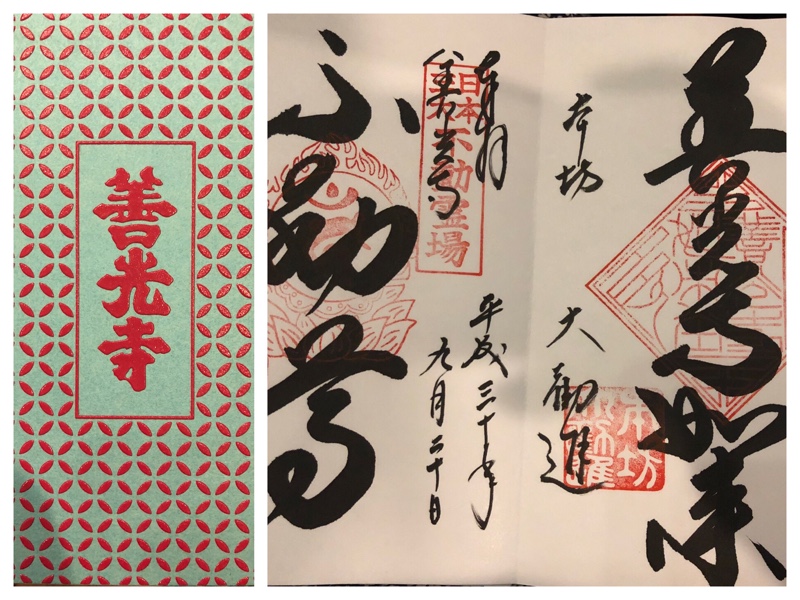 善光寺
善光寺如来
本坊　大勧進
奉拝
平成三十年
九月二十日
善光寺
日本
不動霊場
不動尊